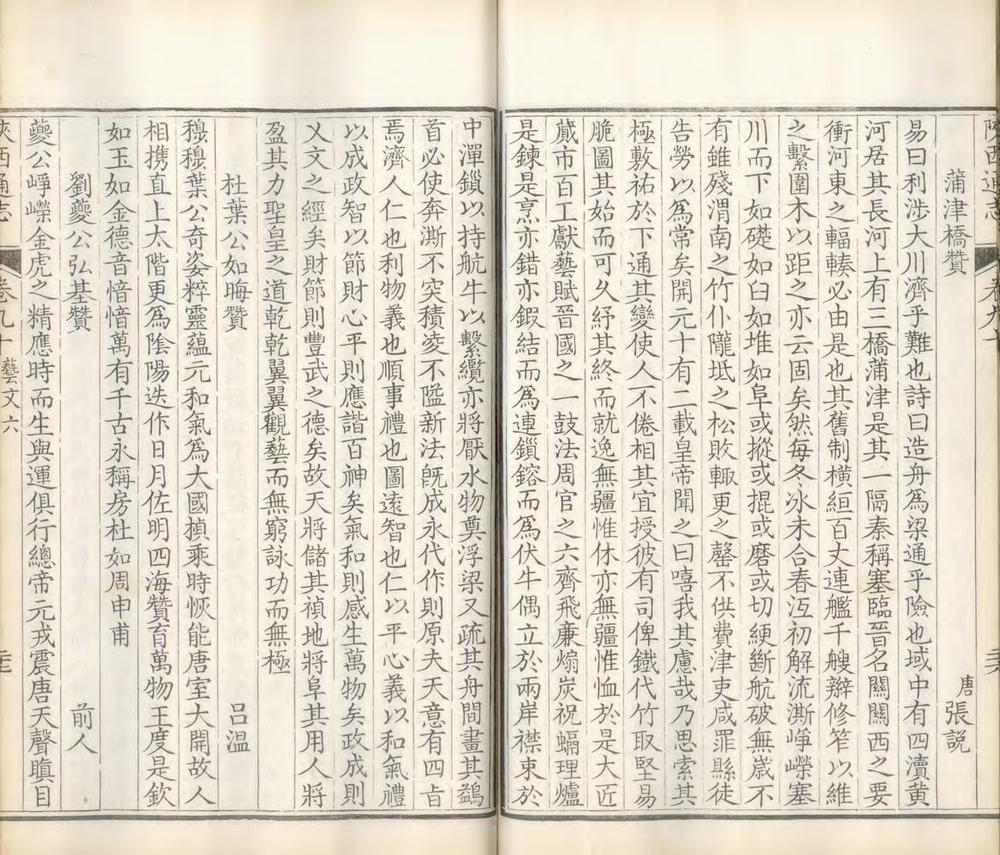 陝西通志
卷九十
蒲津橋贊
唐 張說
易曰利涉大川濟乎難也詩曰造舟爲梁通乎險也域中有四瀆黃
河居其長河上有三橋蒲津是其一隔秦稱塞臨晉名關關西之要
衝河東之輻輳必由是也其舊制橫絙百丈連艦千艘辮修笮以維
之繫圍木以距之亦云固矣然每冬冰未合春沍初解流澌崢嶸塞
川而下如礎如臼如堆如阜或摐或掍或磨或切綆斷航破無歲不
有雖殘渭南之竹仆隴坻之松敗輒更之罄不供費津吏咸罪縣徒
告勞以爲常矣開元十有二載皇帝聞之曰嘻我其慮哉乃思索其
極敷祐於下通其變使人不倦相其宜授彼有司俾鐵代竹取堅易
脆圖其始而可久紓其終而就逸無疆惟休亦無疆惟恤於是大匠
蕆事百工獻藝賦晉國之一鼓法周官之六齊飛廉煽炭祝蝠理爐
是鍊是烹亦錯亦鍜結而爲連鎖鎔而爲伏牛偶立於兩岸襟束於
中潬鎖以持航牛以繫纜亦將厭水物奠浮梁又疏其舟間畫其鷁
首必使奔澌不突積凌不隘新法旣成永代作則原夫天意有四旨
焉濟人仁也利物義也順事禮也圖遠智也仁以平心義以和氣禮
以成政智以節財心平則應諧百神矣氣和則感生萬物矣政成則
乂文之經矣財節則豐武之德矣故天將儲其禎地將阜其用人將
盈其力聖皇之道乾乾翼翼觀藝而無窮詠功而無極
杜葉公如晦贊
吕溫
穆穆葉公奇姿粹靈蘊元和氣爲大國楨乘時恢能唐室大開故人
相攜直上太階更爲陰陽迭作日月佐明四海贊育萬物王度是欽
如玉如金德音愔愔萬有千古永稱房杜如周申甫
劉夔公弘基贊
前人
夔公崢嶸金虎之精應時而生與運俱行總帝元戎震唐天聲瞋目
陝西通志
卷九十 藝文六